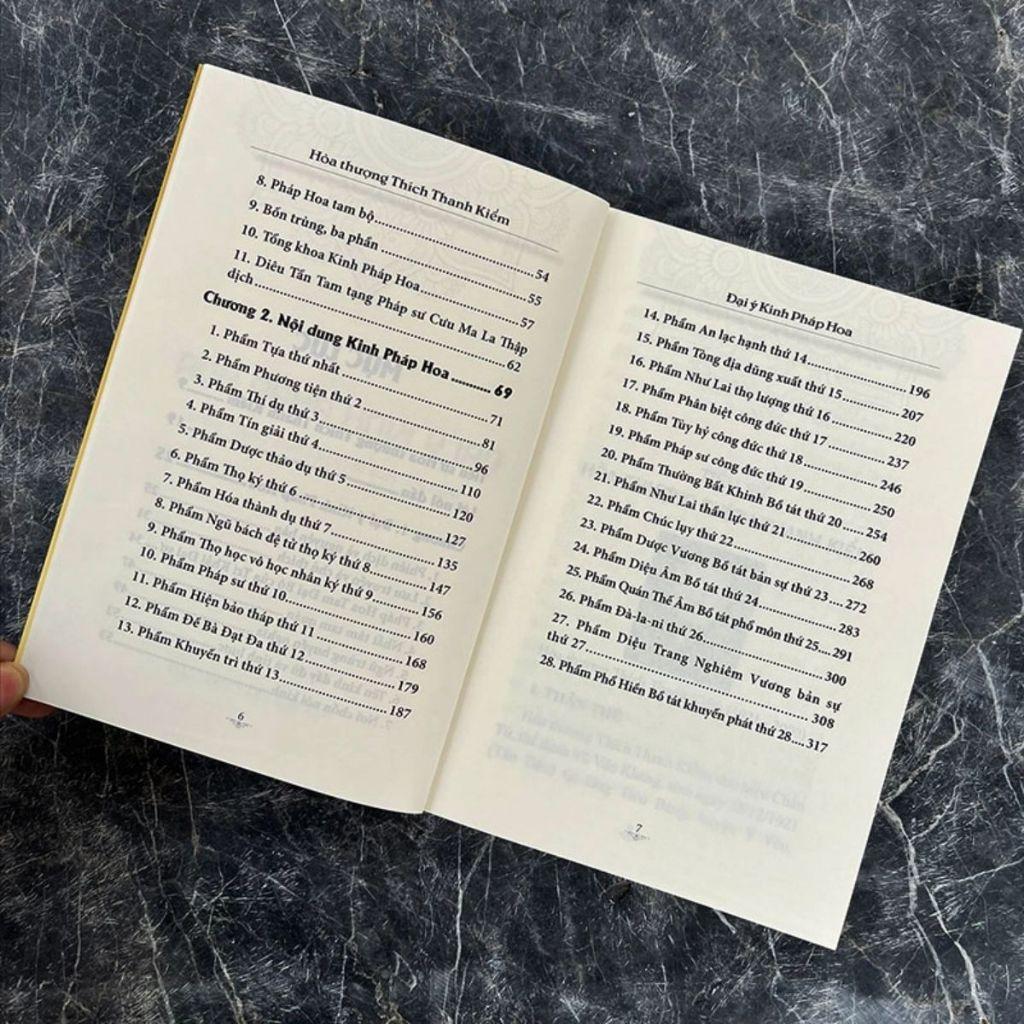 Hòa thượng Thích Thanh Kiểm
8. Pháp Hoa tam bộ..........54
9. Bốn trùng, ba phần..........55
10. Tổng khoa Kinh Pháp Hoa..........57
11. Diêu Tần Tam tạng Pháp sư Cưu Ma La Thập
dịch..........62
Chương 2. Nội dung Kinh Pháp Hoa..........69
1. Phẩm Tựa thứ nhất..........71
2. Phẩm Phương tiện thứ 2..........81
3. Phẩm Thí dụ thứ 3..........96
4. Phẩm Tín giải thứ 4..........110
5. Phẩm Dược thảo dụ thứ 5..........120
6. Phẩm Thọ ký thứ 6..........127
7. Phẩm Hóa thành dụ thứ 7..........135
8. Phẩm Ngũ bách đệ tử thọ ký thứ 8..........147
9. Phẩm Thọ học vô học nhân ký thứ 9..........156
10. Phẩm Pháp sư thứ 10..........160
11. Phẩm Hiện bảo tháp thứ 11..........168
12. Phẩm Đề Bà Đạt Đa thứ 12..........179
13. Phẩm Khuyến trì thứ 13..........187
6
Đại ý Kinh Pháp Hoa
14. Phẩm An lạc hạnh thứ 14..........196
15. Phẩm Tòng địa dũng xuất thứ 15..........207
16. Phẩm Như Lai thọ lượng thứ 16..........220
17. Phẩm Phân biệt công đức thứ 17..........237
18. Phẩm Tùy hỷ công đức thứ 18..........246
19. Phẩm Pháp sư công đức thứ 19..........250
20. Phẩm Thường Bất Khinh Bồ tát thứ 20..........254
21. Phẩm Như Lai thần lực thứ 21..........260
22. Phẩm Chúc lụy thứ 22..........268
23. Phẩm Dược Vương Bồ tát bản sự thứ 23....272
24. Phẩm Diệu Âm Bồ tát thứ 24..........283
25. Phẩm Quán Thế Âm Bồ tát phổ môn thứ 25....291
26. Phẩm Đà-la-ni thứ 26..........300
27. Phẩm Diệu Trang Nghiêm Vương bản sự
thứ 27..........308
28. Phẩm Phổ Hiền Bồ tát khuyến phát thứ 28....317
7